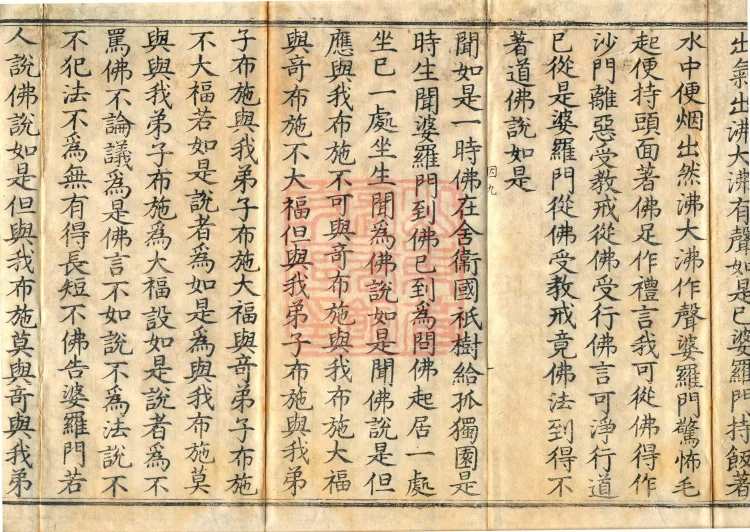 出氣出沸大沸有聲如是已婆羅門持飯著
水中便烟出然沸大沸作聲婆羅門驚怖毛
起便持頭面著佛足作禮言我可從佛得作
沙門離惡受教戒從佛受行佛言可淨行道
已從是婆羅門從佛受教戒竟佛法到得不
著道佛說如是
聞如是一時佛在舍衞國祇樹給孤獨園是
時生聞婆羅門到佛已到為問佛起居一處
坐已一處坐生聞為佛說如是聞佛說是但
應與我布施不可與奇布施與我布施大福
與奇布施不大福但與我弟子布施與我弟
子布施與我弟子布施大福與奇弟子布施
不大福若如是說者為如是為與我布施莫
與與我弟子布施為大福設如是說者為不
罵佛不論議為是佛言不如說不為法說不
不犯法不為無有得長短不佛告婆羅門若
人說佛說如是但與我布施莫與奇與我弟